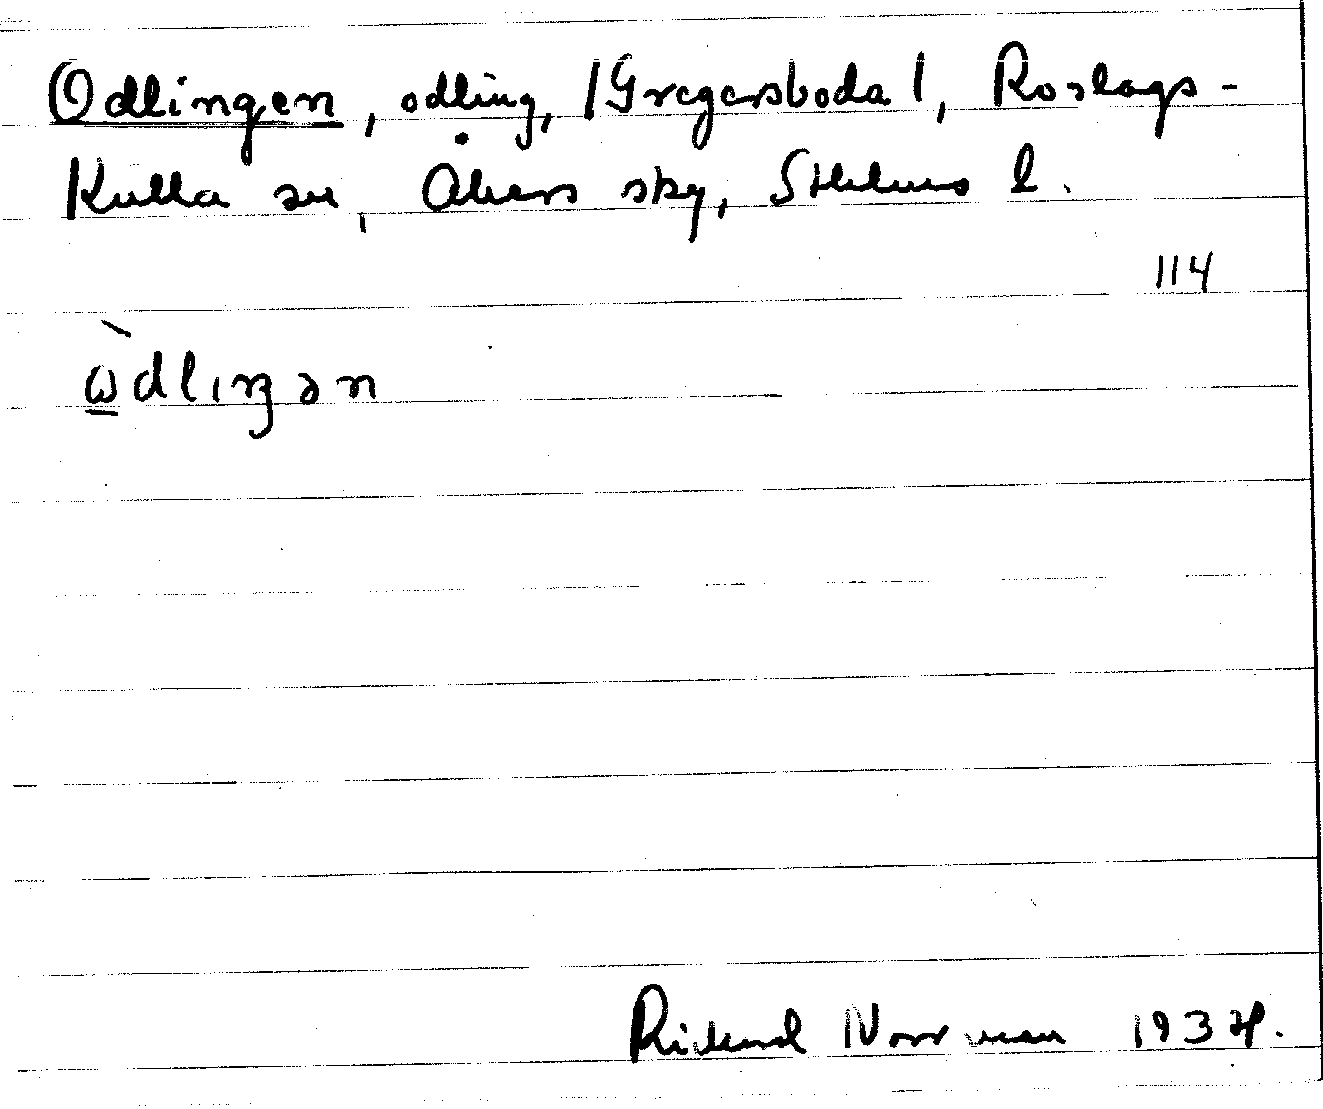 Odlingen, odling, /Gregersboda/, Roslags-
Kulla sn, Åkers sky, Sthlms l.
114
ὼdlıŋən
Rickard Norrman 1934.